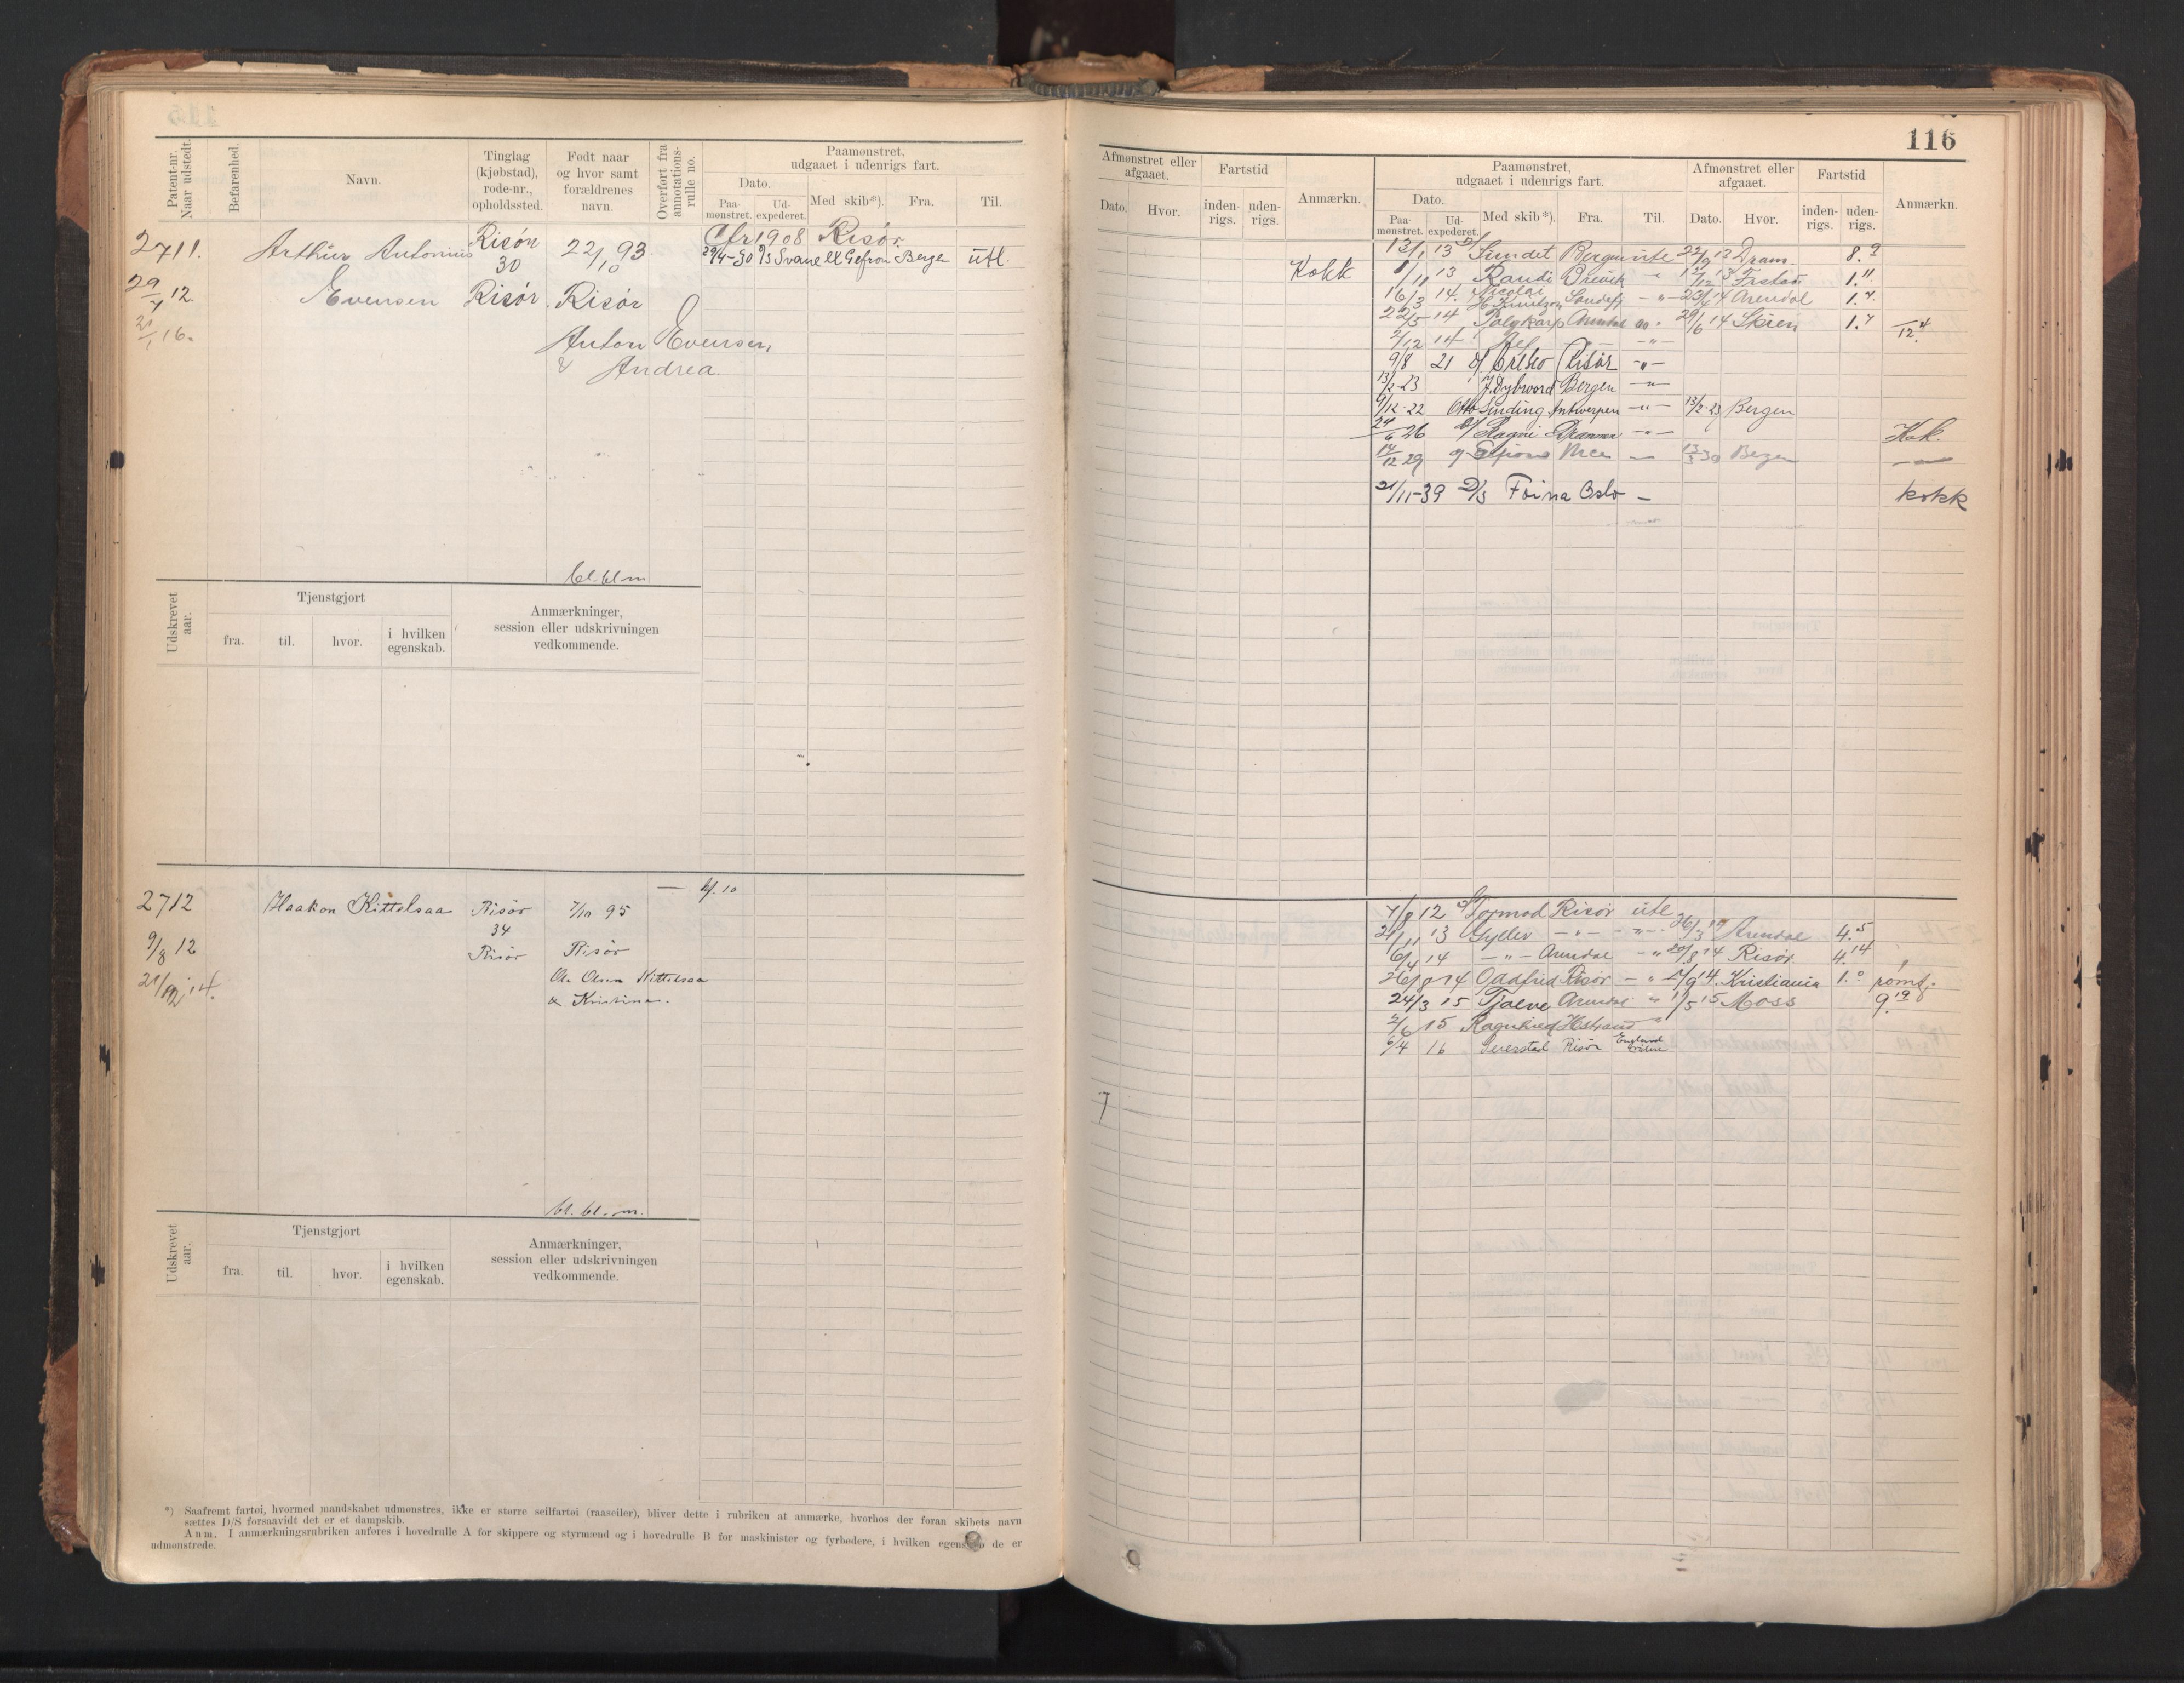 116
Patent-nr. Naar udstedt.
Befarenhed.
Navn.
Tinglag (kjøbstad), rode-nr., opholdssted.
Født naar og hvor samt forældrenes navn.
Overført fra annotations-rulle no.
Paamønstret, udgaaet i udenrigs fart.
Dato.
Paa-mønstret. Ud-expederet. Med skib*). Fra. Til.
2711. Arthur Antonius Risør 22/10 93 Cfr 1908 Risør.
30 29/4-30 D/s Svane ex Gefion Bergen utl.
29/7 12. Evensen Risør Risør
31/1 16.
Anton Evensen,
& Andrea
bl. bl. m
Udskrevet aar.
Tjenstgjort
fra. til. hvor. i hvilken egenskab.
Anmærkninger, session eller udskrivningen vedkommende.
2712 Haakon Kittelsaa Risør 7/10 95 — bf. 10
34
9/8 12 Risør Risør
21/12 14. Ole Olsen Kittelsaa
& Kristina.
bl. bl. m.
Udskrevet aar.
Tjenstgjort
fra. til. hvor. i hvilken egenskab.
Anmærkninger, session eller udskrivningen vedkommende.
*) Saafremt fartøi, hvormed mandskabet udmønstres, ikke er større seilfartøi (raaseiler), bliver dette i rubriken at anmærke, hvorhos der foran skibets navn
sættes D/S forsaavidt det er et dampskib.
Anm. I anmærkningsrubriken anføres i hovedrulle A for skippere og styrmænd og i hovedrulle B for maskinister og fyrbødere, i hvilken egenskab de er
udmønstrede.
Afmønstret eller afgaaet.
Dato. Hvor.
Fartstid
inden-rigs. uden-rigs.
Anmærkn.
Paamønstret, udgaaet i udenrigs fart.
Dato.
Paa-mønstret. Ud-expederet. Med skib*). Fra. Til.
Afmønstret eller afgaaet.
Dato. Hvor.
Fartstid
inden-rigs. uden-rigs.
Anmærkn.
13/1 13 Sundet Bergen ute 22/9 13 Dram. 8.9
Kokk 1/11 13 Randi Brevik " 12/12 13 Frstad 1.11
16/3 14. Nicolai H. Knudtzon Sandefj - " - 23/4 14 Arendal 1.7
22/5 14 Polykarp Arendal " 29/6 14 Skien 1.7 4/12.
2/12 14 - " -
9/8 21 Risør - " -
13/2 23 J. Dybwad Bergen - " -
9/12-22 Otto Sinding Antwerpen - " - 13/2-23 Bergen
24/6 26 Ragni Drammen - " - Kok.
14/12 29 — 13/3 30 Bergen —
21/11-39 D/s Foina Oslo — kokk
7/8 12 Tormod Risør utl
21/11 13 Gyller - " - - " - 26/3 Arendal 4.5
6/4 14 - " - Arendal - " 20/8 14 Risør 4.14
26/8 14 Oddfrid Risør - " 27/9 14. Kristiania 1.0
24/3 15 Tjalve Arendal " 1/5 15 Moss 9.19
2/6 15 Ragnhild Holmestrand "
6/4 16 Seierstad Risør England